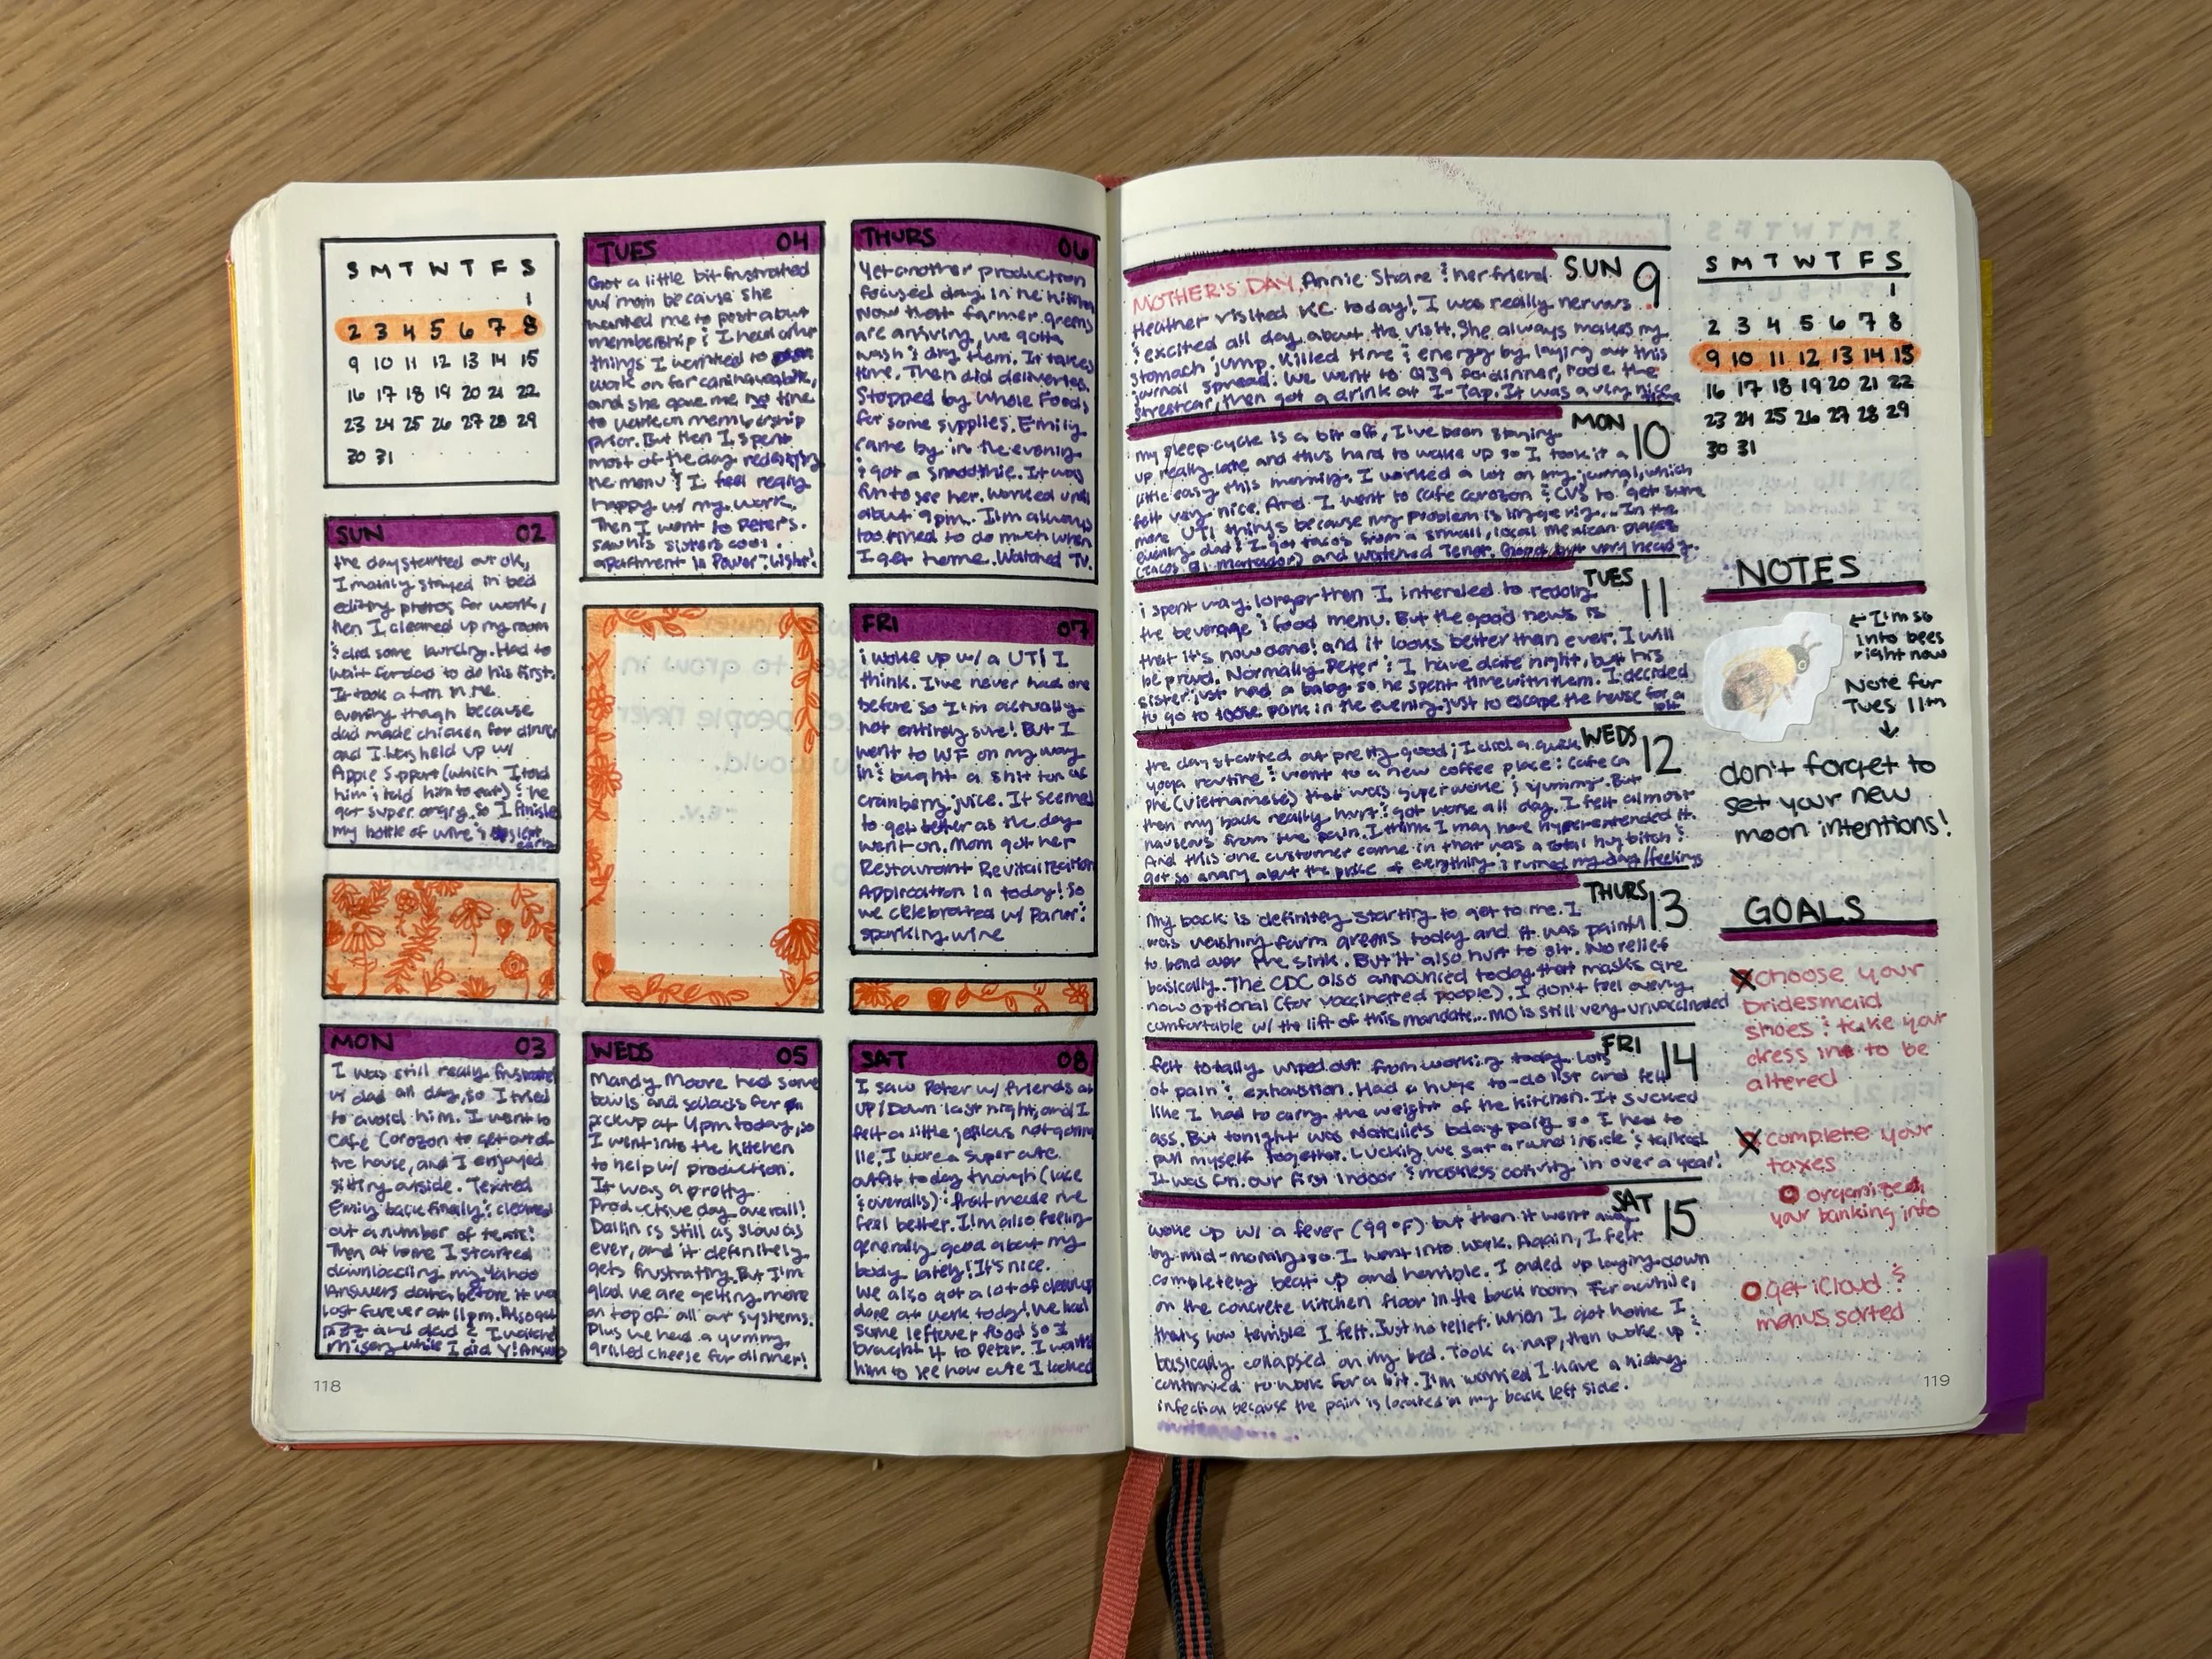 S M T W T F S
1
2 3 4 5 6 7 8
9 10 11 12 13 14 15
16 17 18 19 20 21 22
23 24 25 26 27 28 29
30 31
SUN 02
the day started out ok,
I mainly stayed in bed
editing photos for work,
then I cleaned up my room
& did some laundry. Had to
wait for dad to do his first.
It took a turn in the
evening though because
dad made chicken for dinner
and I was held up w/
Apple Support (which I told
him & told him to eat) & he
got super angry. So I finished
my bottle of wine &
MON 03
I was still really frustrated
w/ dad all day, so I tried
to avoid him. I went to
Cafe Corazon to get out of
the house, and I enjoyed
sitting outside. Texted
Emily back finally & cleared
out a number of texts!
Then at home I started
downloading my Yahoo
Answers data before it was
lost forever at 11pm. Also got
and dad & I watched
Misery while I did Y! Answers
TUES 04
Got a little bit frustrated
w/ mom because she
wanted me to post about
membership & I had other
things I wanted to
work on for
and she gave me no time
to work on membership
prior. But then I spent
most of the day redesigning
the menu & I feel really
happy w/ my work.
Then I went to Peter's.
saw his sisters cool
apartment in Power & Light!
WEDS 05
Mandy Moore had some
bowls and salads for
pickup at 4pm today, so
I went into the kitchen
to help w/ production.
It was a pretty
Productive day overall!
Dallin is still as slow as
ever, and it definitely
gets frustrating. But I'm
glad we are getting more
on top of all our systems.
Plus we had a yummy
grilled cheese for dinner!
THURS 06
Yet another production
focused day in the kitchen
Now that farmer greens
are arriving, we gotta
wash & dry them. It takes
time. Then did deliveries.
Stopped by Whole Foods
for some supplies. Emily
came by in the evening
& got a smoothie. It was
fun to see her. Worked until
about 9pm. I'm always
too tired to do much when
I get home. Watched TV.
FRI 07
i woke up w/ a UTI I
think. I've never had one
before so I'm actually
not entirely sure! But I
went to WF on my way
in & bought a shit ton of
cranberry juice. It seemed
to get better as the day
went on. Mom got her
Restaurant Revitalization
Application in today! So
we celebrated w/ Parlor &
sparkling wine
SAT 08
I saw Peter w/ friends at
UP/Down last night, and I
felt a little jealous not going
lie. I wore a super cute
outfit today though (lace
& overalls) & that made me
feel better. I'm also feeling
generally good about my
body lately! It's nice.
We also got a lot of cleanup
done at work today! We had
some leftover food so I
brought it to Peter. I wanted
him to see how cute I looked
118
SUN 9
MOTHER'S DAY. Annie Share & her friend
Heather visited KC today! I was really nervous
& excited all day about the visit. She always makes my
stomach jump. Killed time & energy by laying out this
journal spread. We went to Q39 for dinner, rode the
streetcar, then got a drink at I-Tap. It was a very nice time
MON 10
my sleep cycle is a bit off, I've been staying
up really late and thus hard to wake up so I took it a
little easy this morning. I worked a lot on my journal, which
felt very nice. And I went to cafe corazon & CVS to get some
more UTI things because my problem is lingering... In the
evening dad & I got tacos from a small, local mexican places
(Tacos El Matador) and watched Tenet. Good but very heady.
TUES 11
i spent way longer then I intended to redoing
the beverage & food menu. But the good news is
that it's now done! and it looks better than ever. I will
be proud. Normally Peter & I have date night, but his
sister just had a baby so he spent time with them. I decided
to go to loose park in the evening just to escape the house for a bit
WEDS 12
the day started out pretty good; I did a quick
yoga routine & went to a new coffee place: Cafe Ca
Phe (Vietnamese) that was super woke & yummy. But
then my back really hurt & got worse all day. I felt almost
nauseous from the pain. I think I may have hyperextended it.
And this one customer came in that was a total huy bitch &
got so angry about the price of everything & ruined my day/feelings
THURS 13
My back is definitely starting to get to me. I
was washing farm greens today and it was painful
to bend over the sink. But it also hurt to sit. No relief
basically. The CDC also announced today that masks are
now optional (for vaccinated people). I don't feel overly
comfortable w/ the lift of this mandate... MO is still very unvaccinated
FRI 14
felt totally wiped out from working today. Lots
of pain & exhaustion. Had a huge to-do list and felt
like I had to carry the weight of the kitchen. It sucked
ass. But tonight was Natalie's bday party so I had to
pull myself together. Luckily we sat around inside & talked.
It was fun. our first indoor & maskless activity in over a year!
SAT 15
woke up w/ a fever (99°F) but then it went away
by mid-morning so I went into work. Again, I felt
completely beat up and horrible. I ended up laying down
on the concrete kitchen floor in the back room for awhile,
that's how terrible I felt. Just no relief. When I got home I
basically collapsed on my bed. Took a nap, then woke up &
continued to work for a bit. I'm worried I have a kidney
infection because the pain is located in my back left side.
S M T W T F S
1
2 3 4 5 6 7 8
9 10 11 12 13 14 15
16 17 18 19 20 21 22
23 24 25 26 27 28 29
30 31
NOTES
← I'm so
into bees
right now
Note for
Tues 11th
↓
don't forget to
set your new
moon intentions!
GOALS
choose your
bridesmaid
shoes & take your
dress in to be
altered
complete your
taxes
organized
your banking info
get iCloud &
menus sorted
119